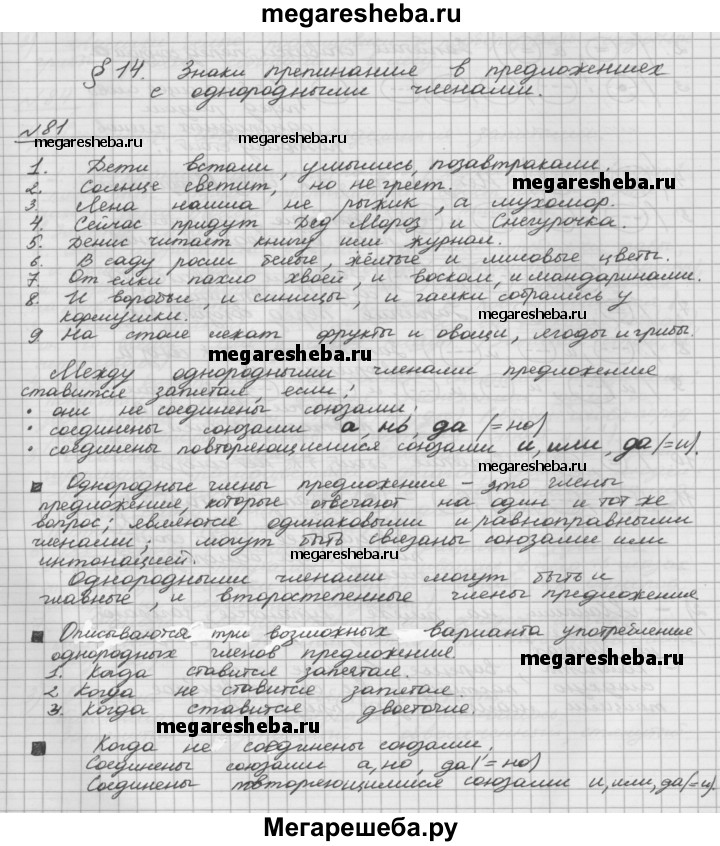 megaresheba.ru
§ 14. Знаки препинания в предложениях
с однородными членами.
№81
megaresheba.ru
megaresheba.ru
1. Дети встали, умылись, позавтракали.
2. Солнце светит, но не греет.
megaresheba.ru
3. Лена нашла не рыжик, а мухомор.
4. Сейчас придут Дед Мороз и Снегурочка.
5. Денис читает книгу или журнал.
6. В саду росли белые, жёлтые и лиловые цветы.
7. От ёлки пахло хвоей, и воском, и мандаринами.
8. И воробьи, и синицы, и галки собрались у
кормушки.
9. На столе лежат фрукты и овощи, ягоды и грибы.
megaresheba.ru
megaresheba.ru
Между однородными членами предложения
ставится запятая, если:
• они не соединены союзами;
• соединены союзами а, но, да (=но)
• соединены повторяющимися союзами и, или, да(=и).
megaresheba.ru
Однородные члены предложения – это члены
предложения, которые отвечают на один и тот же
вопрос; являются одинаковыми и равноправными
членами; могут быть связаны союзами или
интонацией.
megaresheba.ru
Однородными членами могут быть и
главные, и второстепенные члены предложения
Описываются три возможных варианта употребления
однородных членов предложения.
1. Когда ставится запятая.
megaresheba.ru
2 Когда не ставится запятая.
3. Когда ставится двоеточие.
megaresheba.ru
Когда не соединены союзами.
Соединены союзами а, но, да(=но)
Соединены повторяющимися союзами и, или, да(=и).
Мегарешеба.ру